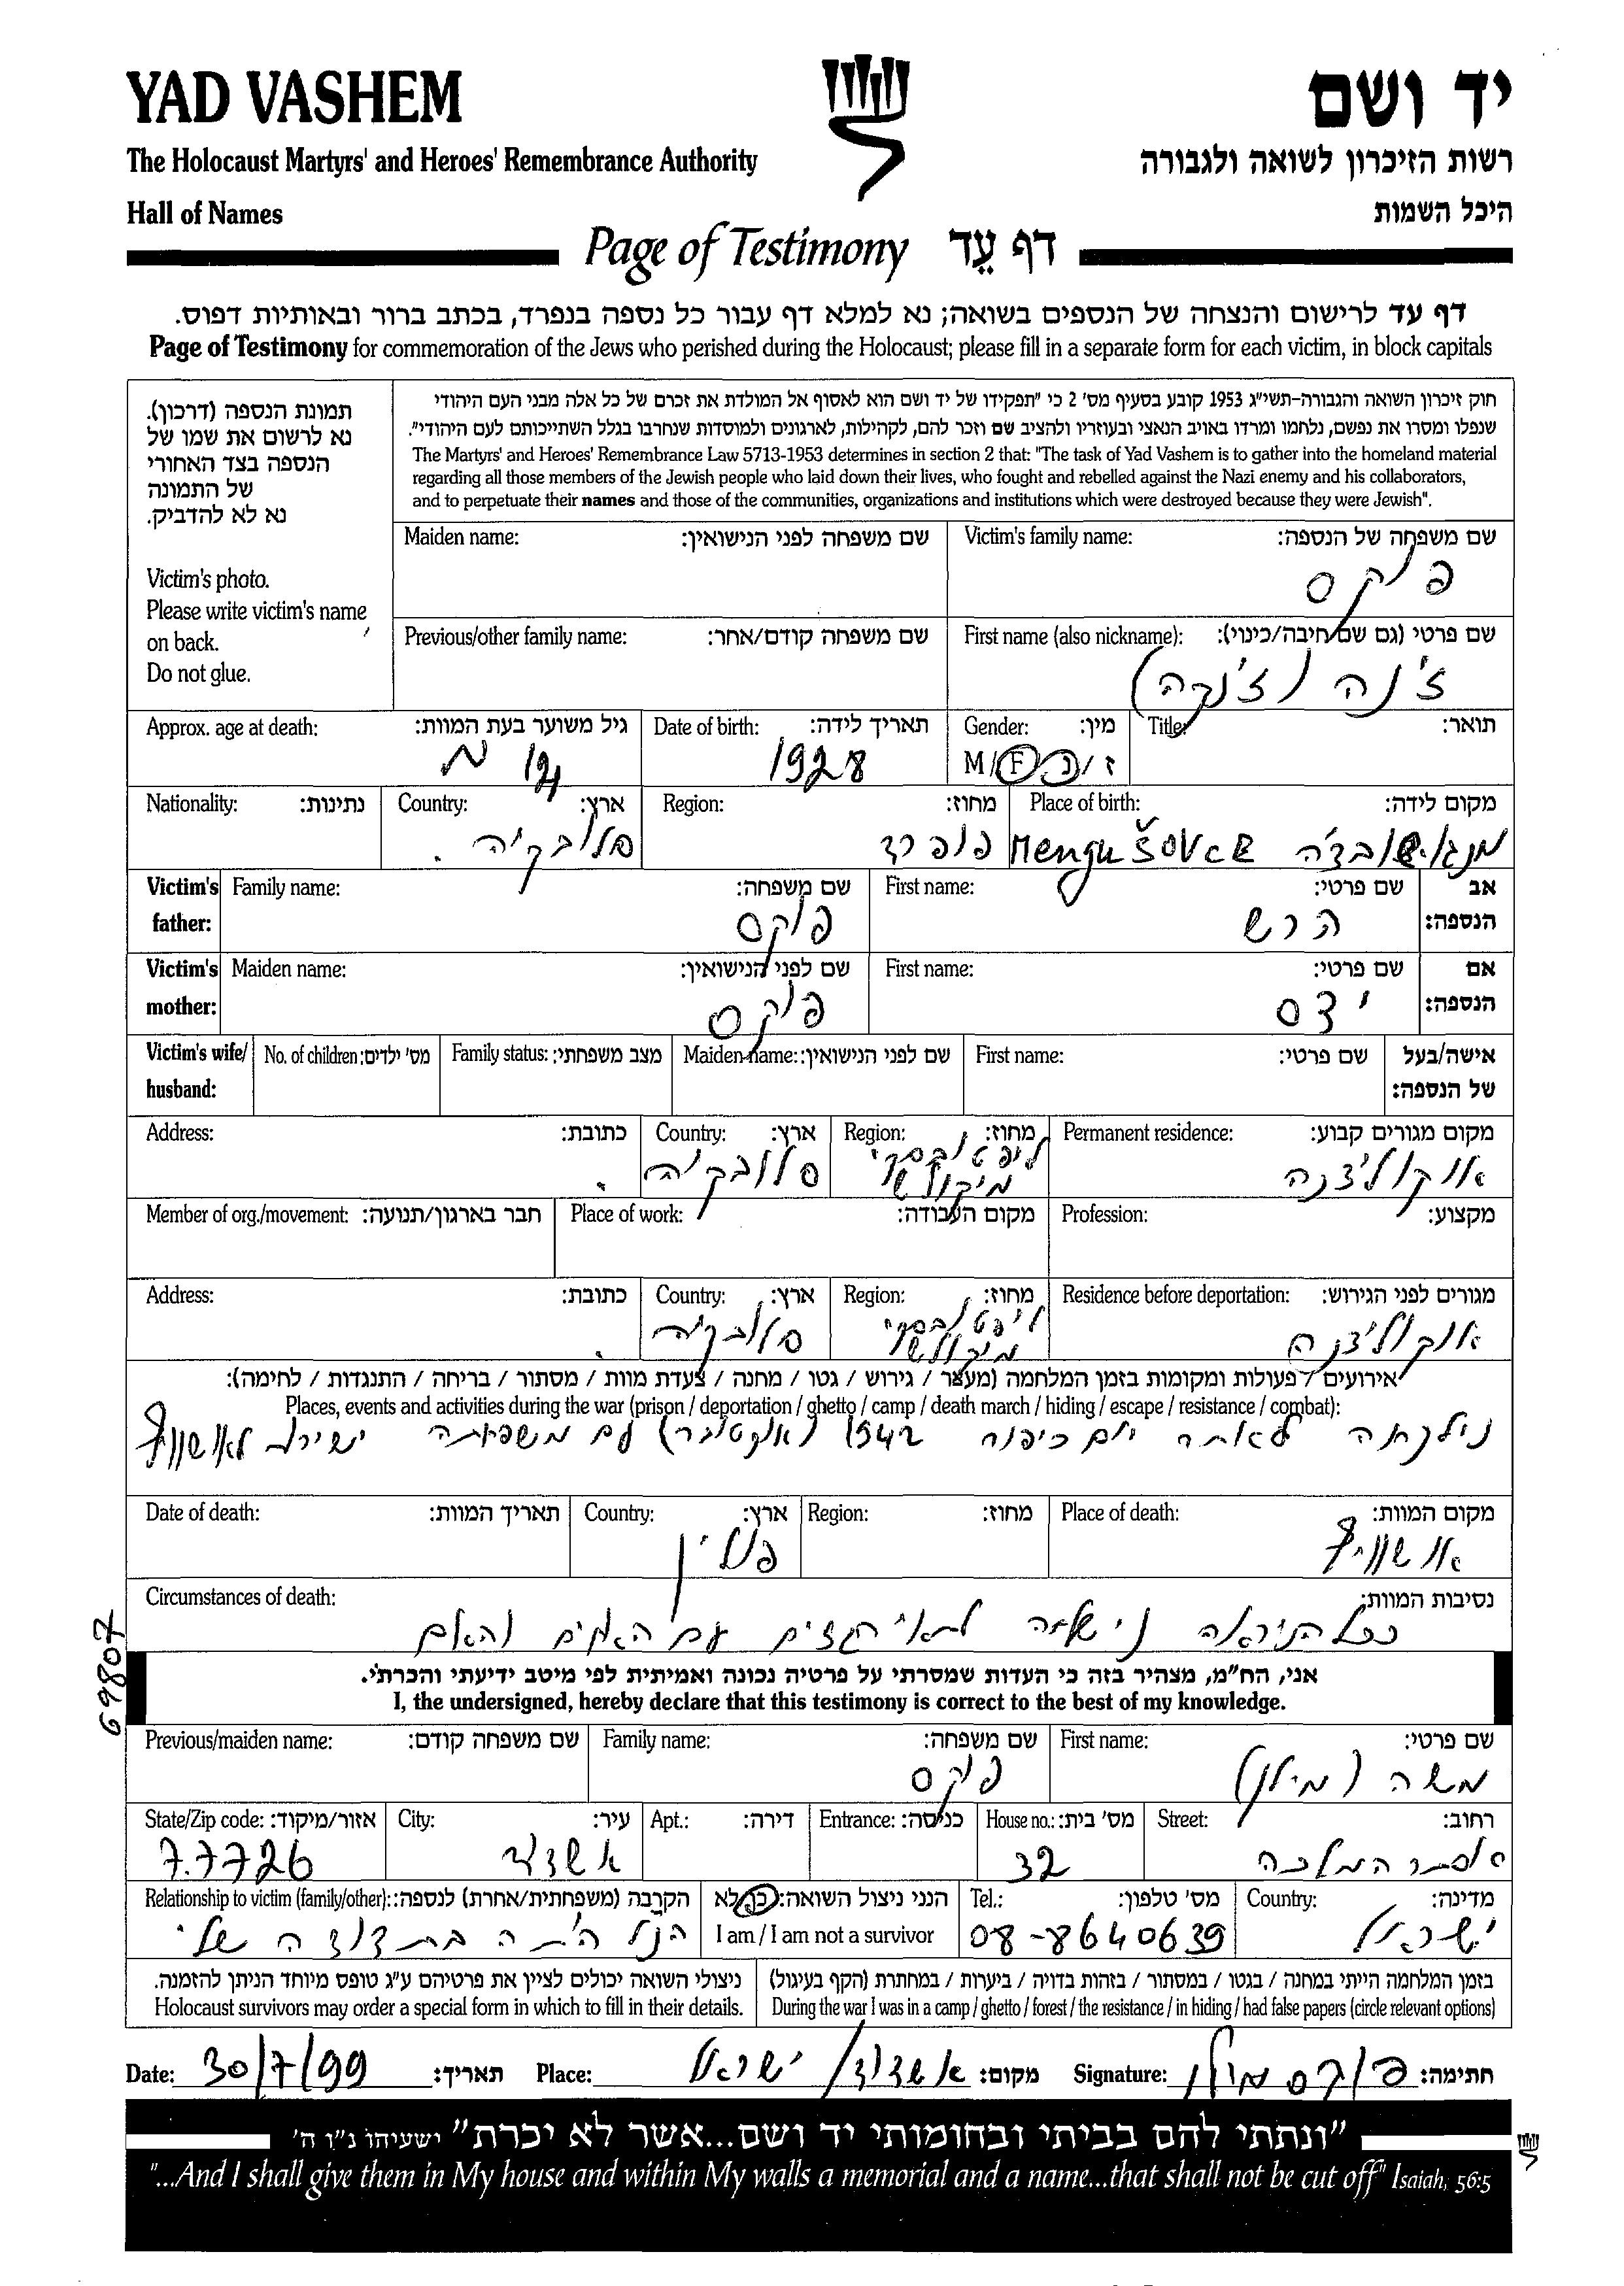 YAD VASHEM
יד ושם
The Holocaust Martyrs' and Heroes' Remembrance Authority
רשות הזיכרון לשואה ולגבורה
Hall of Names
היכל השמות
Page of Testimony דף עֵד
דף עד לרישום והנצחה של הנספים בשואה; נא למלא דף עבור כל נספה בנפרד, בכתב ברור ובאותיות דפוס.
Page of Testimony for commemoration of the Jews who perished during the Holocaust; please fill in a separate form for each victim, in block capitals
תמונת הנספה (דרכון).
נא לרשום את שמו של
הנספה בצד האחורי
של התמונה
נא לא להדביק.
Victim's photo.
Please write victim's name
on back.
Do not glue.
חוק זיכרון השואה והגבורה-תשי"ג 1953 קובע בסעיף מס' 2 כי "תפקידו של יד ושם הוא לאסוף אל המולדת את זכרם של כל אלה מבני העם היהודי
שנפלו ומסרו את נפשם, נלחמו ומרדו באויב הנאצי ובעוזריו ולהציב שם וזכר להם, לקהילות, לארגונים ולמוסדות שנחרבו בגלל השתייכותם לעם היהודי".
The Martyrs' and Heroes' Remembrance Law 5713-1953 determines in section 2 that: "The task of Yad Vashem is to gather into the homeland material
regarding all those members of the Jewish people who laid down their lives, who fought and rebelled against the Nazi enemy and his collaborators,
and to perpetuate their names and those of the communities, organizations and institutions which were destroyed because they were Jewish".
Maiden name: שם משפחה לפני הנישואין: Victim's family name: שם משפחה של הנספה:
פוקס
Previous/other family name: שם משפחה קודם/אחר: First name (also nickname): שם פרטי (גם שם חיבה/כינוי):
ז'נה (ז'נקה)
Approx. age at death: גיל משוער בעת המוות: Date of birth: תאריך לידה: Gender: מין: Title: תואר:
14 1928 M/F ז/נ
Nationality: נתינות: Country: ארץ: Region: מחוז: Place of birth: מקום לידה:
סלובקיה. פופרד Mengušovce
Victim's father: Family name: שם משפחה: First name: שם פרטי: אב הנספה:
פוקס הרש
Victim's mother: Maiden name: שם לפני הנישואין: First name: שם פרטי: אם הנספה:
פוקס
Victim's wife/husband: No. of children: מס' ילדים: Family status: מצב משפחתי: Maiden name: שם לפני הנישואין: First name: שם פרטי: אישה/בעל של הנספה:
Address: כתובת: Country: ארץ: Region: מחוז: Permanent residence: מקום מגורים קבוע:
סלובקיה. ליפטובסקי מיקולש אוקוליצנה
Member of org./movement: חבר בארגון/תנועה: Place of work: מקום העבודה: Profession: מקצוע:
Address: כתובת: Country: ארץ: Region: מחוז: Residence before deportation: מגורים לפני הגירוש:
סלובקיה. ליפטובסקי מיקולש אוקוליצנה
אירועים / פעולות ומקומות בזמן המלחמה (מעצר / גירוש / גטו / מחנה / צעדת מוות / מסתור / בריחה / התנגדות / לחימה):
Places, events and activities during the war (prison / deportation / ghetto / camp / death march / hiding / escape / resistance / combat):
נילקחה יום כיפור 1942 (אוקטובר) עם משפחתה ישירות לאושוויץ
Date of death: תאריך המוות: Country: ארץ: Region: מחוז: Place of death: מקום המוות:
פולין אושוויץ
Circumstances of death: נסיבות המוות:
ככל הניראה לתאי הגזים עם האחים והאם
69807
אני, הח"מ, מצהיר בזה כי העדות שמסרתי על פרטיה נכונה ואמיתית לפי מיטב ידיעתי והכרתי.
I, the undersigned, hereby declare that this testimony is correct to the best of my knowledge.
Previous/maiden name: שם משפחה קודם: Family name: שם משפחה: First name: שם פרטי:
פוקס משה (מילן)
State/Zip code: אזור/מיקוד: City: עיר: Apt.: דירה: Entrance: כניסה: House no.: מס' בית: Street: רחוב:
77726 אשדוד 32 אסתר המלכה
Relationship to victim (family/other): הקרבה (משפחתית/אחרת) לנספה: הנני ניצול השואה: כן/לא Tel.: מס' טלפון: Country: מדינה:
הנ"ל היתה בת דודה שלי I am / I am not a survivor 08-8640639 ישראל
ניצולי השואה יכולים לציין את פרטיהם ע"ג טופס מיוחד הניתן להזמנה. בזמן המלחמה הייתי במחנה / בגטו / במסתור / בזהות בדויה / ביערות / במחתרת (הקף בעיגול)
Holocaust survivors may order a special form in which to fill in their details. During the war I was in a camp / ghetto / forest / the resistance / in hiding / had false papers (circle relevant options)
Date: 30/7/99 תאריך: Place: אשדוד / ישראל מקום: Signature: פוקס מילן חתימה:
"ונתתי להם בביתי ובחומותי יד ושם...אשר לא יכרת" ישעיהו נ"ו ה'
"...And I shall give them in My house and within My walls a memorial and a name...that shall not be cut off" Isaiah, 56:5